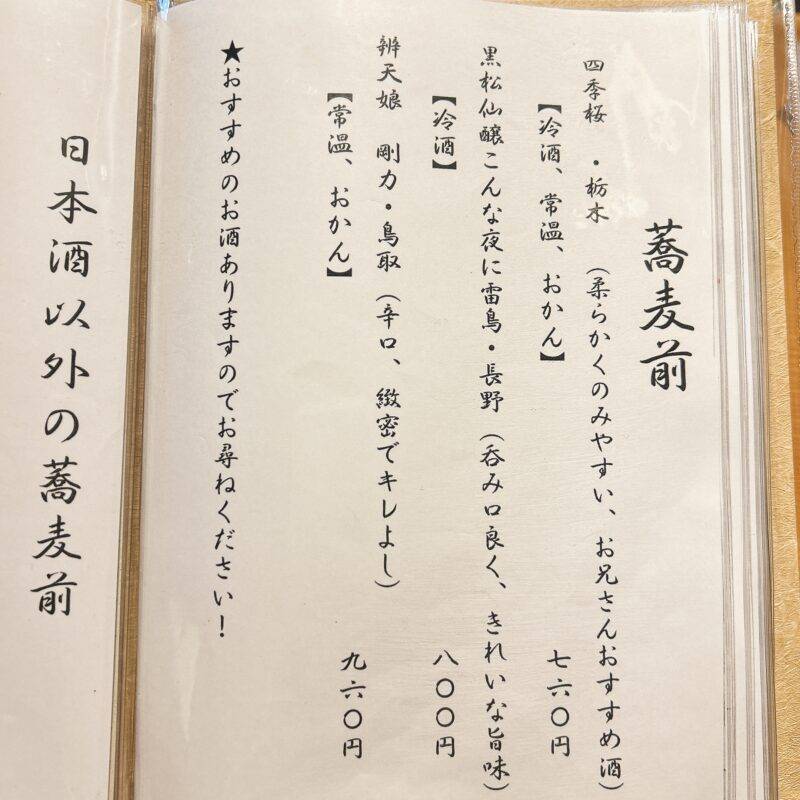 蕎麦前
四季桜 ・栃木 (柔らかくのみやすい、お兄さんおすすめ酒)
【冷酒、常温、おかん】 七六〇円
黒松仙醸こんな夜に雷鳥・長野 (呑み口良く、きれいな旨味)
【冷酒】 八〇〇円
辨天娘 剛力・鳥取 (辛口、緻密でキレよし)
【常温、おかん】 九六〇円
★おすすめのお酒ありますのでお尋ねください!
日本酒以外の蕎麦前